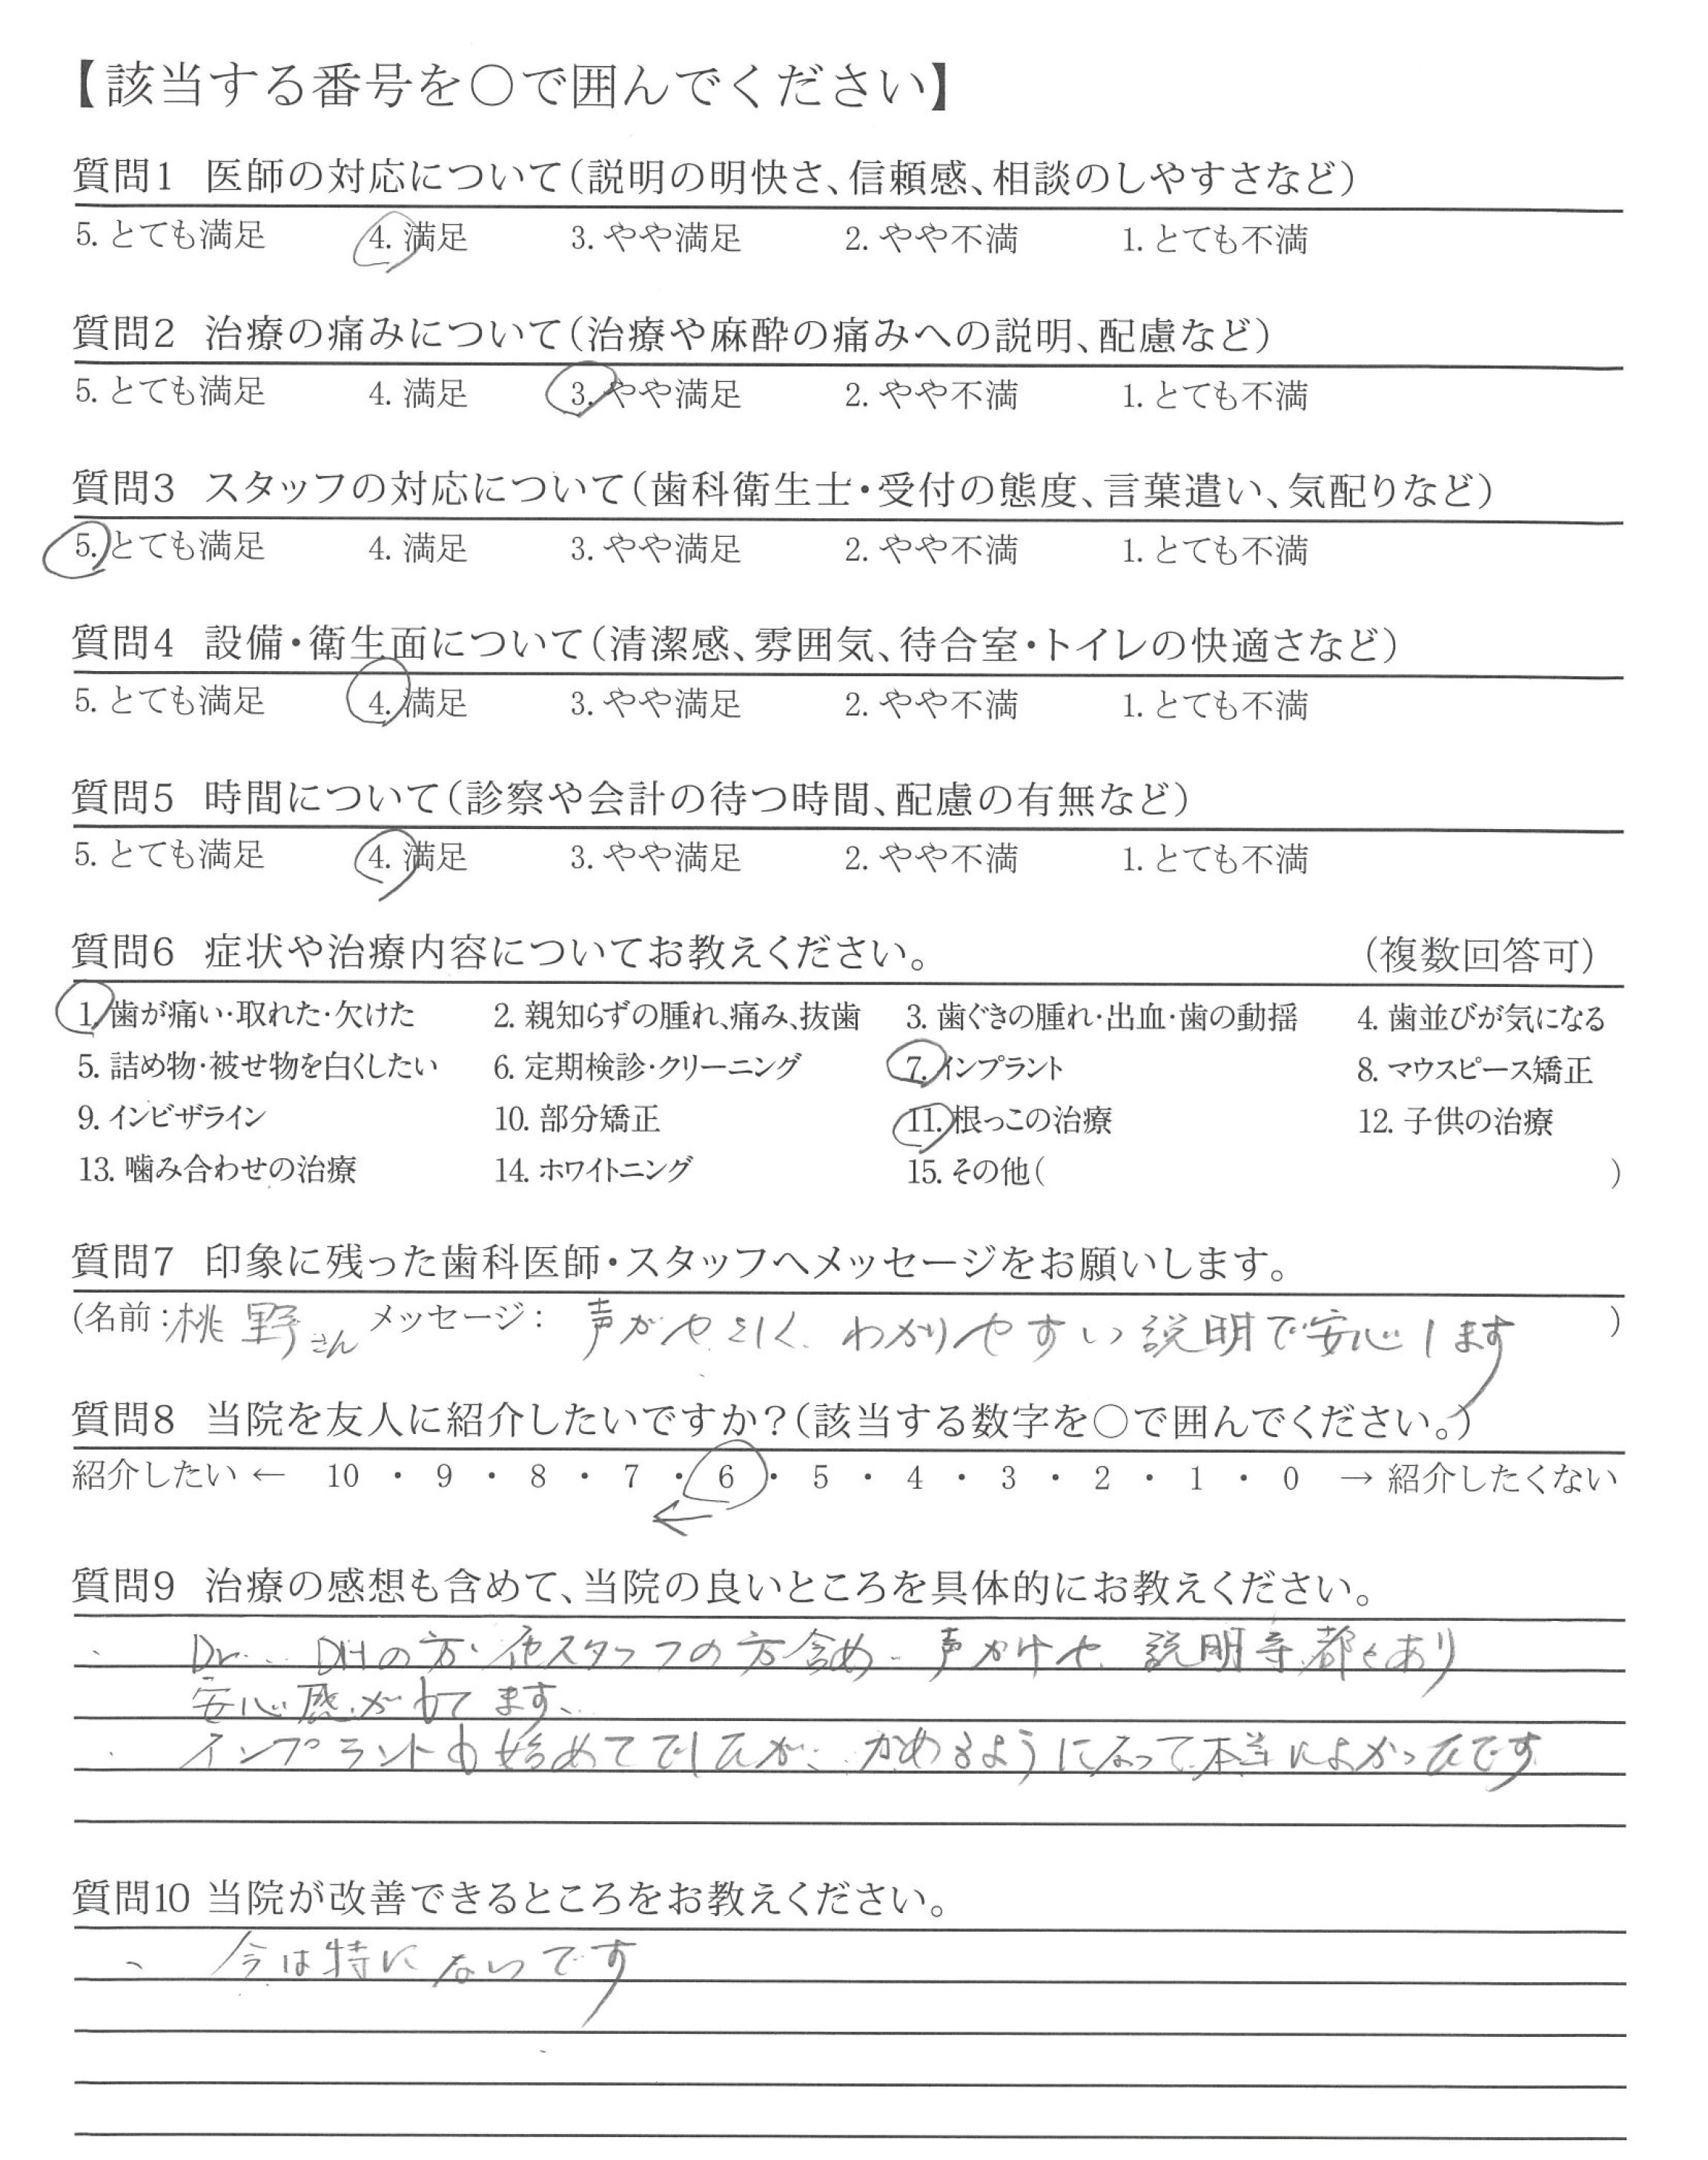 【該当する番号を○で囲んでください】
質問1 医師の対応について(説明の明快さ、信頼感、相談のしやすさなど)
5. とても満足 4. 満足 3. やや満足 2. やや不満 1. とても不満
質問2 治療の痛みについて(治療や麻酔の痛みへの説明、配慮など)
5. とても満足 4. 満足 3. やや満足 2. やや不満 1. とても不満
質問3 スタッフの対応について(歯科衛生士・受付の態度、言葉遣い、気配りなど)
5. とても満足 4. 満足 3. やや満足 2. やや不満 1. とても不満
質問4 設備・衛生面について(清潔感、雰囲気、待合室・トイレの快適さなど)
5. とても満足 4. 満足 3. やや満足 2. やや不満 1. とても不満
質問5 時間について(診察や会計の待つ時間、配慮の有無など)
5. とても満足 4. 満足 3. やや満足 2. やや不満 1. とても不満
質問6 症状や治療内容についてお教えください。 (複数回答可)
1. 歯が痛い・取れた・欠けた 2. 親知らずの腫れ、痛み、抜歯 3. 歯ぐきの腫れ・出血・歯の動揺 4. 歯並びが気になる
5. 詰め物・被せ物を白くしたい 6. 定期検診・クリーニング 7. インプラント 8. マウスピース矯正
9. インビザライン 10. 部分矯正 11. 根っこの治療 12. 子供の治療
13. 噛み合わせの治療 14. ホワイトニング 15. その他( )
質問7 印象に残った歯科医師・スタッフへメッセージをお願いします。
(名前:桃野さん メッセージ: 声がやさしく わかりやすい説明で安心します )
質問8 当院を友人に紹介したいですか?(該当する数字を○で囲んでください。)
紹介したい ← 10 ・ 9 ・ 8 ・ 7 ・ 6 ・ 5 ・ 4 ・ 3 ・ 2 ・ 1 ・ 0 → 紹介したくない
←
質問9 治療の感想も含めて、当院の良いところを具体的にお教えください。
、 Dr.、DHの方、他スタッフの方含め、声かけや、説明等、都度あり
安心感がもてます、
、 インプラントも始めてでしたが、かめるようになって本当によかったです
質問10 当院が改善できるところをお教えください。
、 今は特にないです